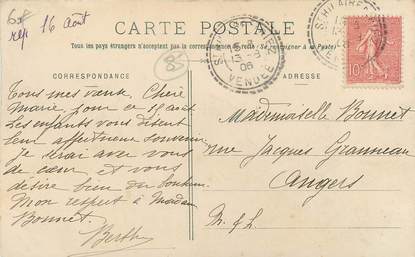 rép 16 Août
CARTE POSTALE
Tous les pays étrangers n'acceptent pas la correspondance au recto. (Se renseigner à la Poste)
CORRESPONDANCE
ADRESSE
VENDEE
06
10
Tous mes vœux, Chère
Marie, pour ce 15 août
Les enfants vous disent
leur affectueux souvenir
Je serai avec vous
de cœur et vous
désire bien du bonheur.
Mon respect à Madame
Bonnet.
Berthe
Mademoiselle Bonnet
rue Jacques Granneau
Angers
M. & L.